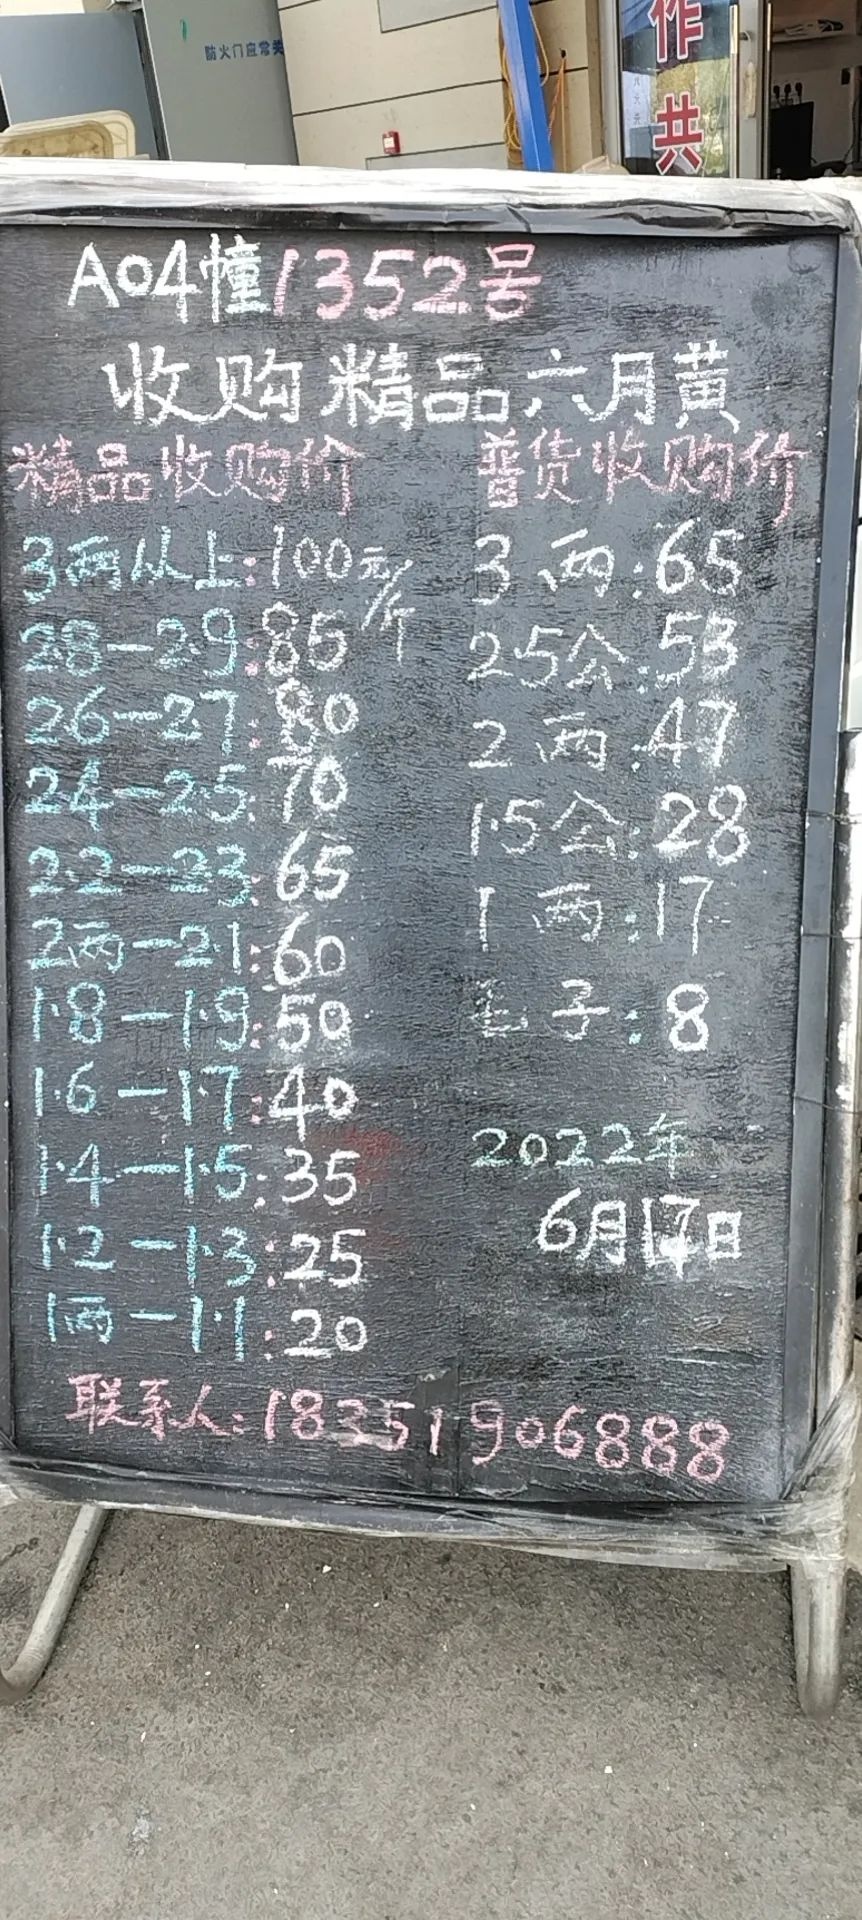 防火门应常关
作
共
A04幢1352号
收购精品六月黄
精品收购价
3两从上:100元/斤
28-2.9:85
26-2.7:80
24-2.5:70
2.2-23:65
2两-2.1:60
1.8-1.9:50
1.6-1.7:40
1.4-1.5:35
1.2-1.3:25
1两-1.1:20
普货收购价
3两:65
25公:53
2两:47
1.5公:28
1两:17
毛子:8
2022年
6月17日
联系人:18351906888